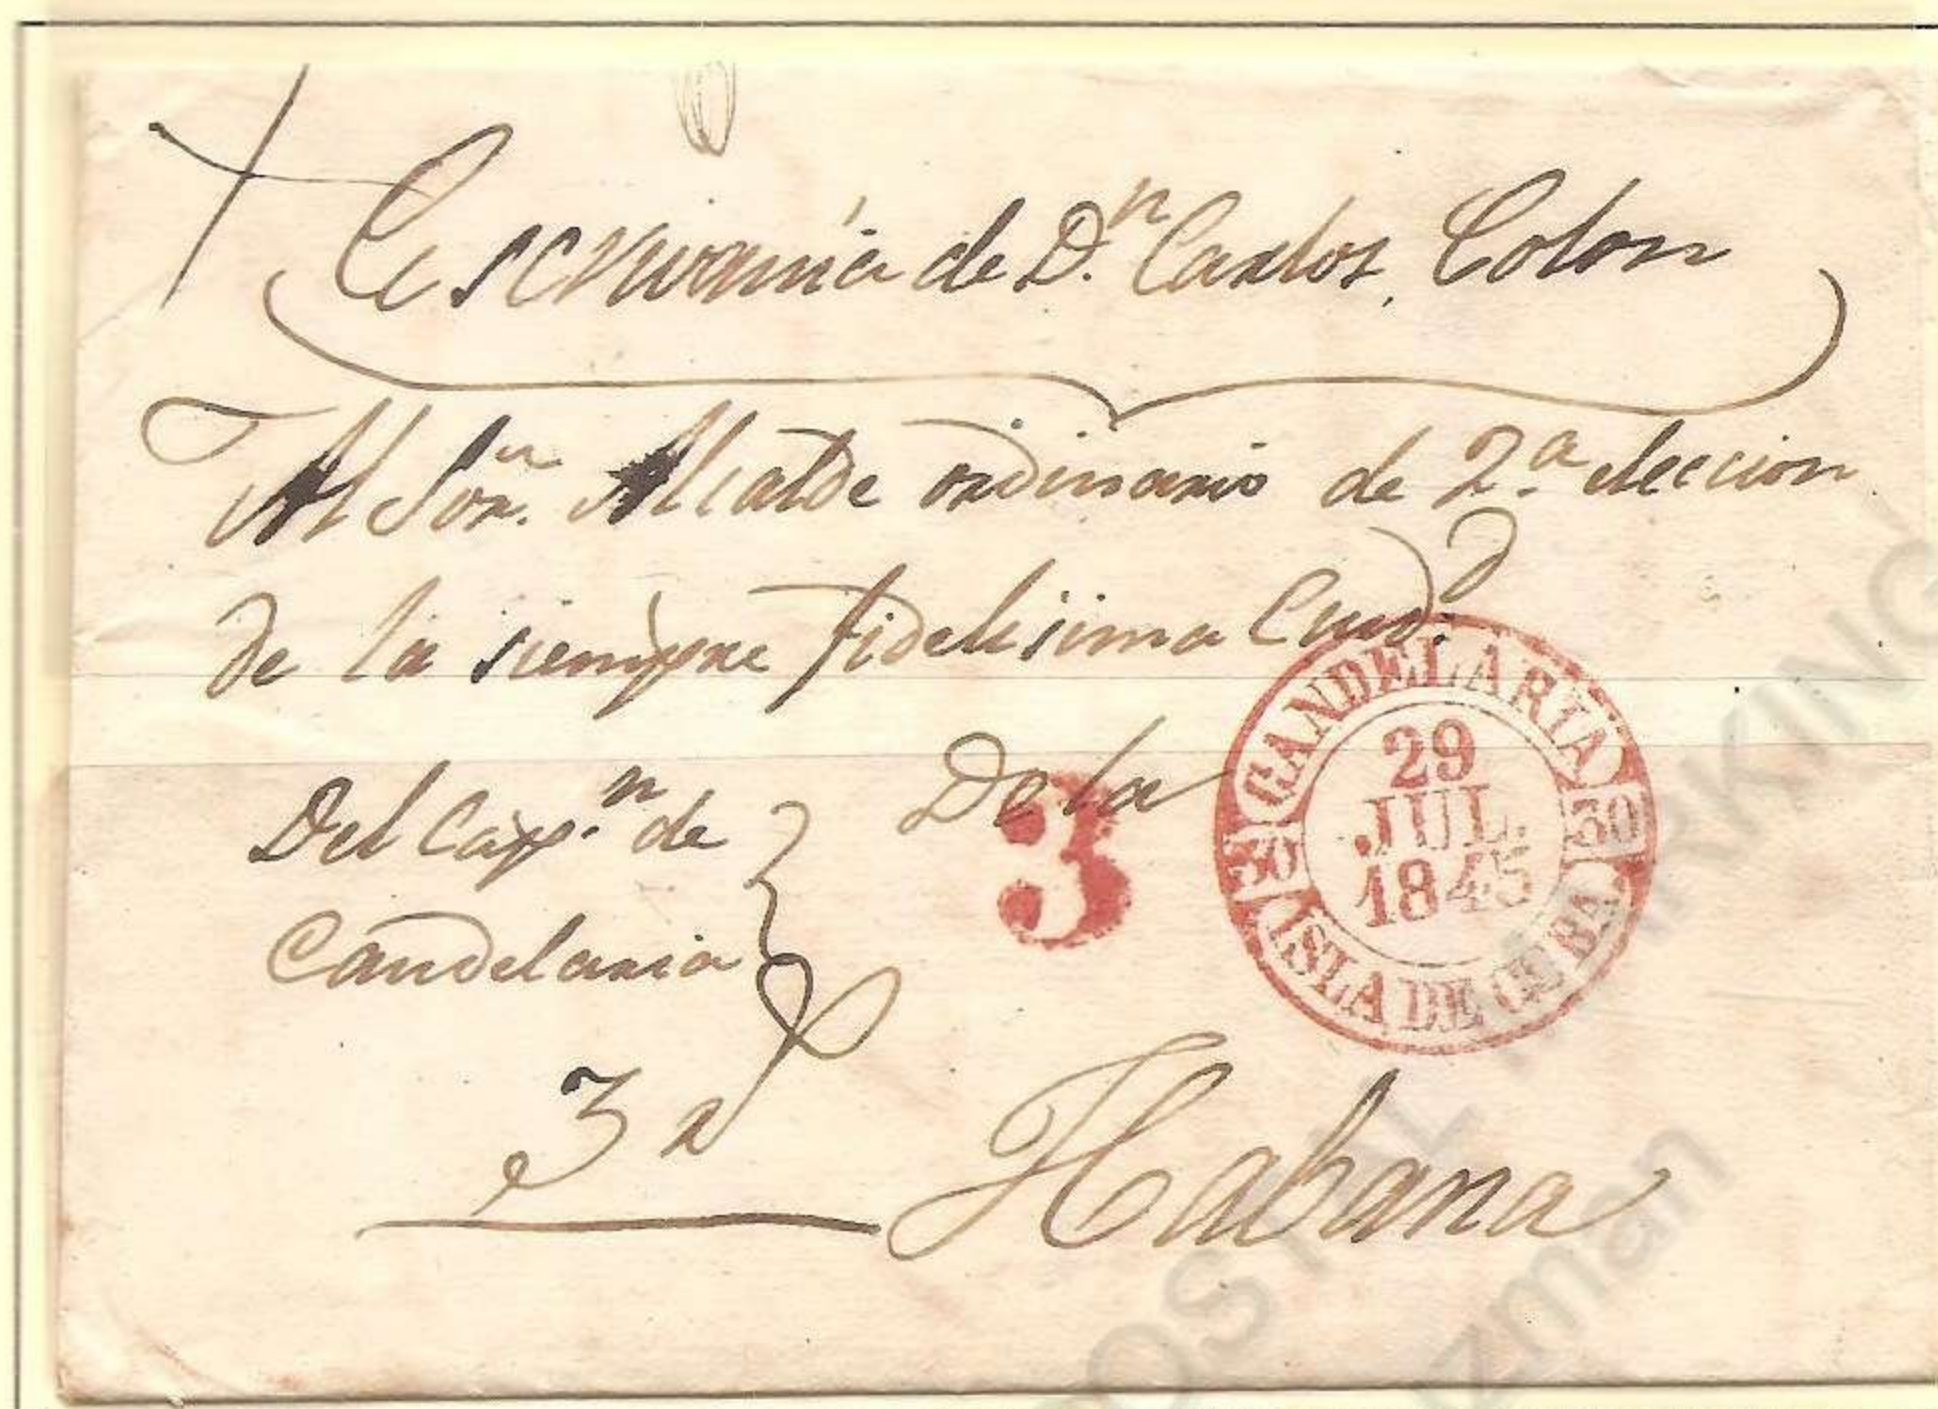 Escrivania de D.n Carlos Colon
Al Sor.n Alcalde ordinario de 2.a eleccion
de la siempre fidelisima Ciud.d
De la
Del Cap.n de
Candelaria
3
CANDELARIA
29
JUL.
1845
30 30
ISLA DE CUBA
3 r
Habana
POSTAL MARKING
zman